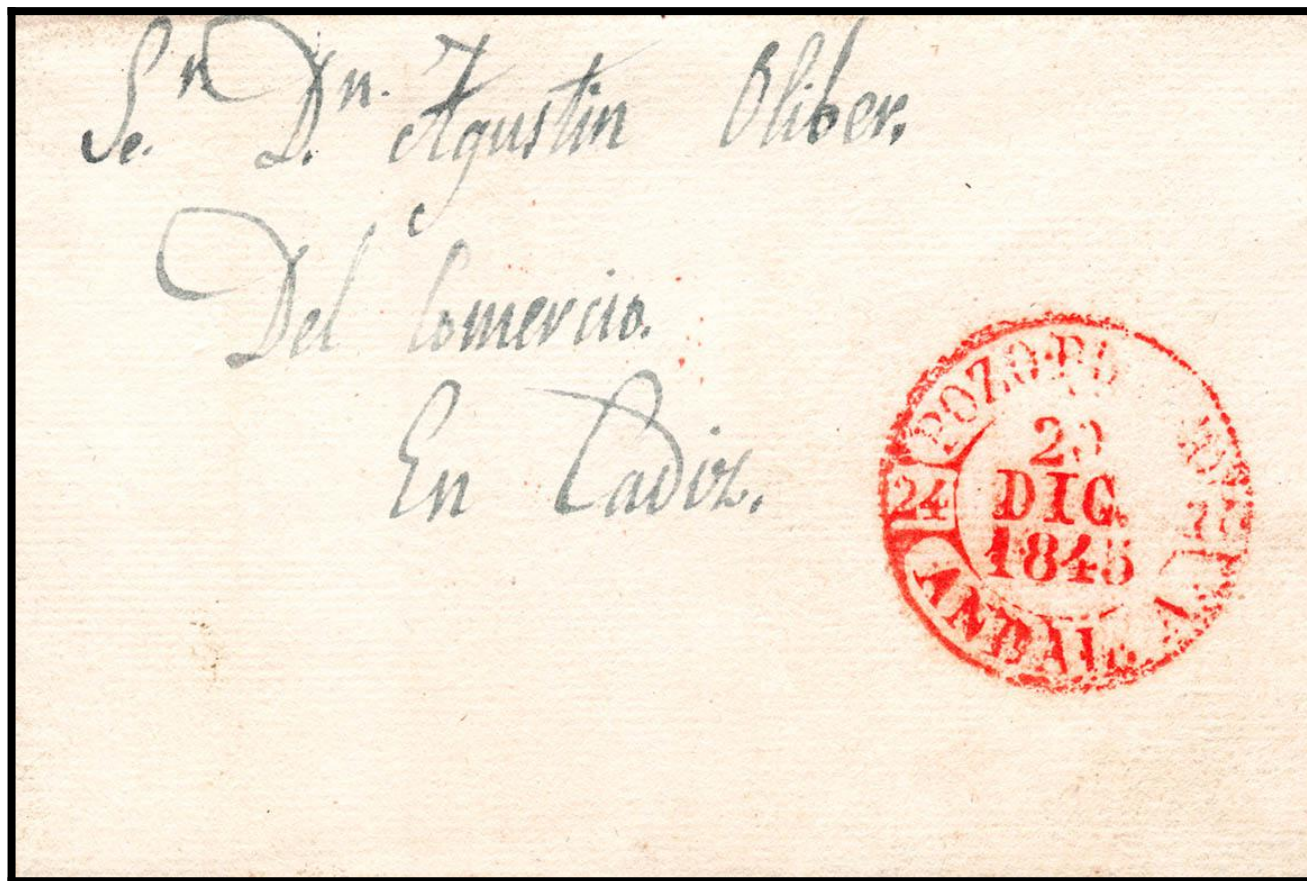 Sr. Dn. Agustin Oliber.
Del Comercio.
En Cadiz.
24
DIC.
1845
ANDAL.